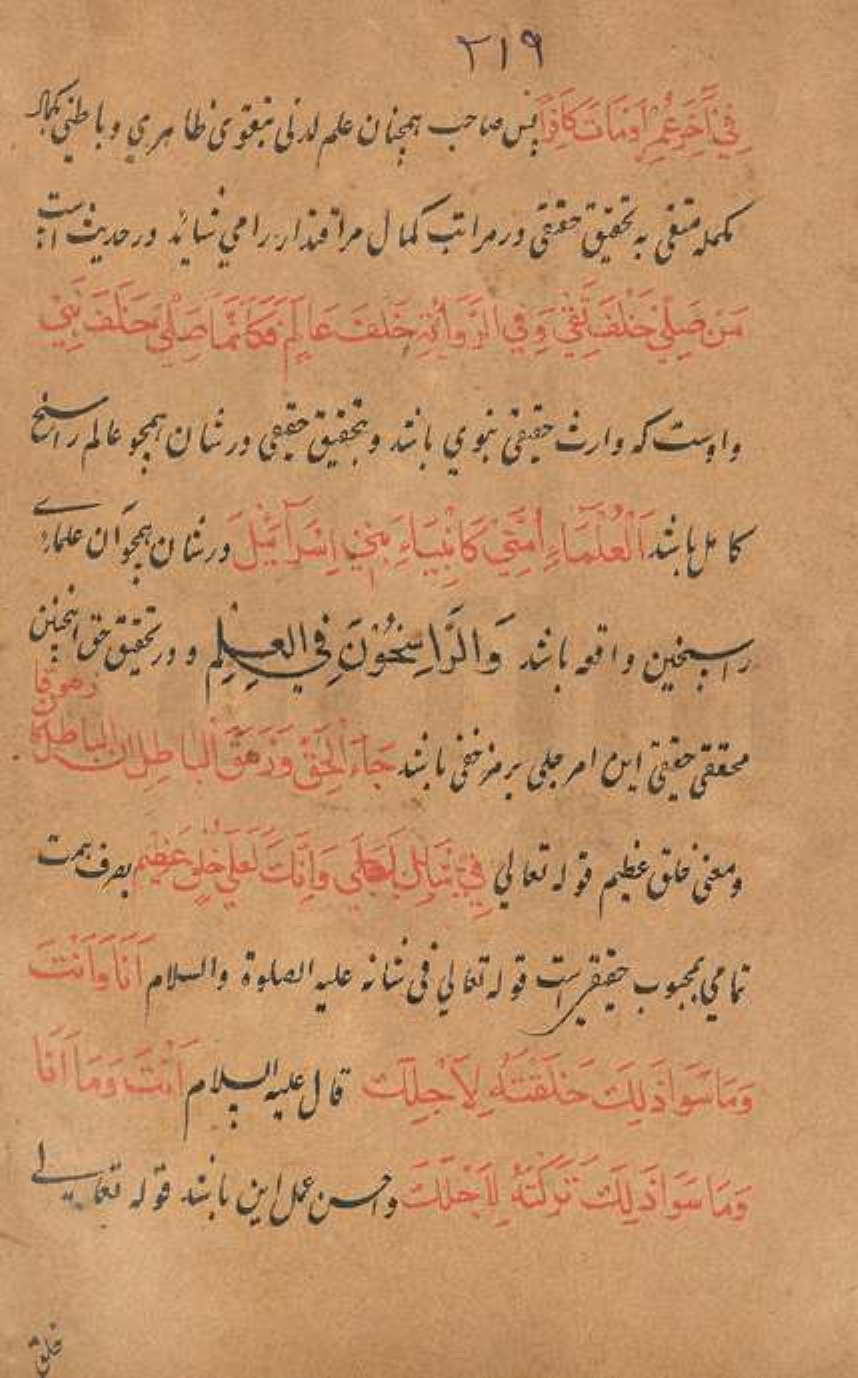 ۲۱۹
فِيْ آخِرِ عُمْرٍ اَوْ مَاتَ كَافِرًا پس صاحب همچنان علم لدنی بتقوی ظاهري و باطني بکمال
مکمله متقی به تحقیق حقیقی در مراتب کمال مراقتدار را می شاید در حدیث است
مَنْ صَلّٰى خَلْفَ تَقِيٍّ وَفِي الرَّوَايَةِ خَلْفَ عَالِمٍ فَكَاَنَّمَا صَلّٰى خَلْفَ نَبِيٍّ
و اوست که وارث حقیقی نبوي باشد و بتحقیق حقیقی در شان همچو عالم راسخ
کامل باشد اَلْعُلَمَاءِ اُمَّتِيْ كَاَنْبِيَاءِ بَنِيْ اِسْرَآئِيْلَ در شان همچو آن علمای
راسخین واقعه باشد وَالرَّاسِخُوْنَ فِي الْعِلْمِ و در تحقیق حق اینچنین
محققی حقیقی این امر جلی برمز خفی باشد جَاءَ الْحَقُّ وَزَهَقَ الْبَاطِلُ اِنَّ الْبَاطِلَ كَانَ زَهُوْقًا
و معنی خلق عظیم قوله تعالي وَاِنَّكَ لَعَلٰى خُلُقٍ عَظِيْمٍ بصرف همت
تمامي بمحبوب حقیقی است قوله تعالي في شانه علیه الصلوة والسلام اَنَا وَاَنْتَ
وَمَا سَوَا ذَلِكَ خَلَقْتُهٗ لِاَجْلِكَ قال علیه السلام اَنْتَ وَمَا اَنَا
وَمَا سَوَا ذَلِكَ تَرَكْتُهٗ لِاَجْلِكَ و احسن عمل این باشد قوله تعالی
خلق